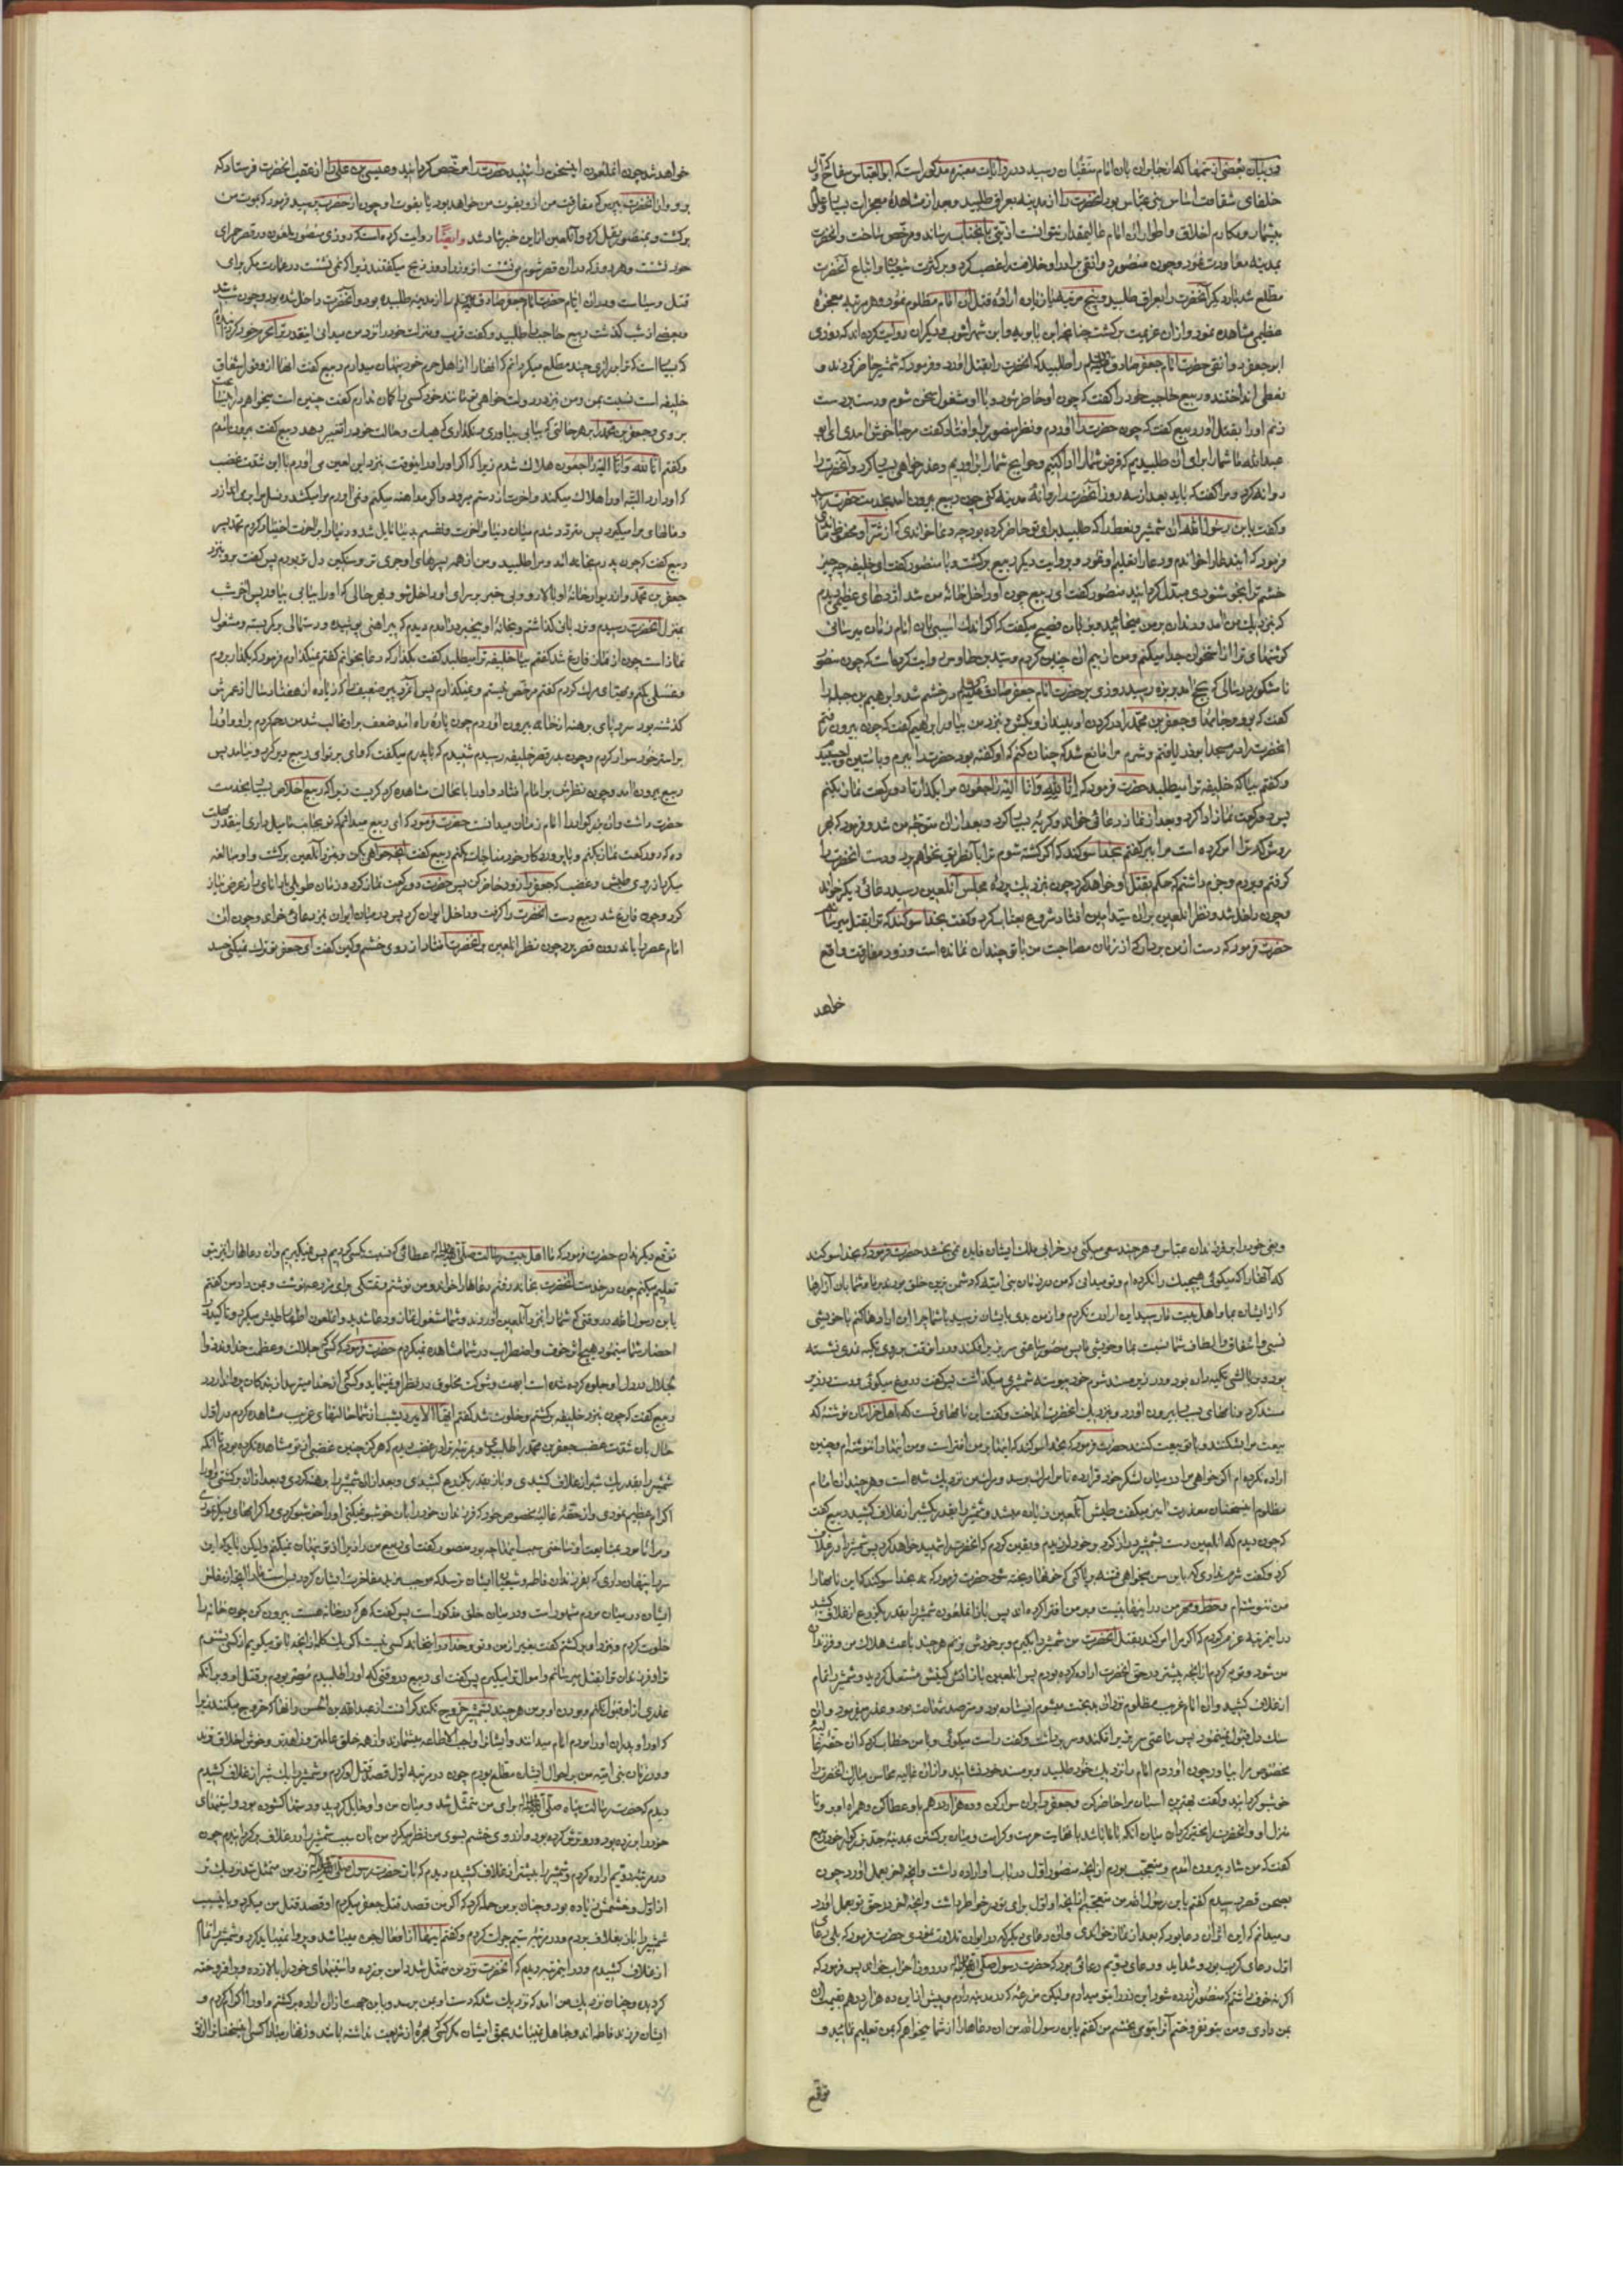 و بیان بعضی از ستمها که از جابران بان امام متقیان رسید در روایات معتبره مذکور است که ابو العباس سفاح که اول
خلفای شقاوت اساس بنی عباس بود آنحضرت را از مدینه بعراق طلبید و بعد از مشاهدهٔ معجزات بسیار و علوم
بیشمار و مکارم اخلاق و اطوار ان امام عالیمقدار نتوانست اذیتی بانجناب رساند و مرخص ساخت و آنحضرت
بمدینه معاودت نمود و چون منصور دوانقی برادر او خلافت را غصب کرد و بر کثرت شیعیان و اتباع آنحضرت
مطلع شد بار دیگر آنحضرت را بعراق طلبید و پنج مرتبه یا زیاده ارادهٔ قتل آن امام مظلوم نمود و هر مرتبه معجزهٔ
عظیمی مشاهده نمود و از ان عزیمت برگشت چنانچه ابن بابویه و ابن شهراشوب و دیگران روایت کرده اند که روزی
ابو جعفر دوانقی حضرت امام جعفر صادق علیه السلم را طلبید که آنحضرت را بقتل آورد و فرمود که شمشیر حاضر کردند و
نطعی انداختند و ربیع حاجب خود را گفت که چون او حاضر شود و با او مشغول سخن شوم و دست بر دست
زنم او را بقتل آور ربیع گفت که چون حضرت را آوردم و نظر منصور بر او افتاد گفت مرحبا خوش آمدی ای ابو
عبدالله ما شما را برای آن طلبیدیم که قرض شما را ادا کنیم و حوایج شما را براوریم و عذر خواهی بسیار کرد و آنحضرت را
روانه کرد و مرا گفت که باید بعد از سه روز آنحضرت را روانهٔ مدینه کنی چون ربیع بیرون آمد بخدمت حضرت رسید
و گفت یا بن رسول الله ان شمشیر و نطع را که طلبید برای تو حاضر کرده بود چه دعا خواندی که از شر او محفوظ ماندی
فرمود که این دعا را خواندم و دعا را تعلیم او نمود و بروایت دیگر ربیع برگشت و با منصور گفت ای خلیفه چه چیز
خشم ترا بخوشنودی مبدل گردانید منصور گفت ای ربیع چون او داخل خانه من شد اژدهای عظیمی دیدم
که نزدیک من آمد و دندان بر من میخائید و بزبان فصیح میگفت که اگر اندک اسیبی بان امام زمان برسانی
گوشتهای ترا از استخوان جدا میکنم و من از بیم آن چنین کردم و سید بن طاوس روایت کرده است که چون منصور
در سالی که بحج آمد بربذه رسید روزی بر حضرت امام جعفر صادق علیه السلم در خشم شد و ابرهیم بن جبله را
گفت که برو و جعفر بن محمد را در گردن او بینداز و بکش و بنزد من بیاور ابرهیم گفت که چون بیرون رفتم
انحضرت را در مسجد ابوذر یافتم و شرم مرا مانع شد که چنان کنم که او گفته بود حضرت را ببرم و باستین او چسبیدم
و گفتم بیا که خلیفه ترا میطلبد حضرت فرمود که انا لله و انا الیه راجعون مرا بگذار تا دو رکعت نماز بکنم
پس دو رکعت نماز ادا کرد و بعد از نماز دعائی خواند و گریهٔ بسیار کرد و بعد از ان متوجه من شد و فرمود که بهر
روش که ترا امر کرده است مرا ببر گفتم بخدا سوگند که اگر کشته شوم ترا بآن طریق نخواهم برد و دست انحضرت را
گرفتم و بردم و جزم داشتم که حکم بقتل او خواهد کرد چون نزدیک پردهٔ مجلس آنلعین رسید دعائی دیگر خواند
و چون داخل شد و نظر انلعین بران سید امین افتاد شروع بعتاب کرد و گفت بخدا سوگند که ترا بقتل میرسانم
حضرت فرمود که دست از من بردار که از زمان مصاحبت من با تو چندان نمانده است و زود مفارقت واقع
خواهد
خواهد شد چون انملعون این سخن را شنید حضرت را مرخص گردانید و عیسی بن علی را از عقب انحضرت فرستاد که
برو و از انحضرت بپرس که مفارقت من از او بفوت من خواهد بود یا بفوت او چون از حضرت پرسید فرمود که بموت من
برگشت و بمنصور نقل کرد و آنلعین از این خبر شاد شد و ایضاً روایت کرده است که روزی منصور ملعون در قصر حمرای
خود نشست و هر روز که در ان قصر شوم می نشست انروز را روز ذبح میگفتند زیرا که نمی نشست در عمارت مگر برای
قتل و سیاست و در ان ایام حضرت امام جعفر صادق علیه السلم را از مدینه طلبیده بود و آنحضرت داخل شده بود و چون شب شد
و بعضی از شب گذشت ربیع حاجب را طلبید و گفت قرب و منزلت خود را نزد من میدانی اینقدر ترا محرم خود کرده ام
که بسیار است که ترا بر رازی چند مطلع میگردانم که انها را از اهل حرم خود پنهان میدارم ربیع گفت اینها از وفور اشفاق
خلیفه است نسبت بمن و من نیز در دولت خواهی تو مانند خود کسی را گمان ندارم گفت چنین است میخواهم در این ساعت
بروی و جعفر بن محمد را بر هر حالتی که بیابی بیاوری و نگذاری که هیات و حالت خود را تغییر دهد ربیع گفت بیرون آمدم
و گفتم انا لله و انا الیه راجعون هلاک شدم زیرا که اگر او را در اینوقت بنزد این لعین می آورم با این شدت غضب
که او دارد البته او را هلاک میکند و اخرت از دستم میرود و اگر مداهنه میکنم و نمی آورم مرا میکشد و نسل مرا بر می اندازد
و مالهای مرا میگیرد پس متردد شدم میان دنیا و آخرت و نفسم بدنیا مایل شد و دنیا را بر آخرت اختیار کردم محمد پسر
ربیع گفت که چون پدرم بخانه آمد مرا طلبید و من از همه پسرهای او جری تر و سنگین دل تر بودم پس گفت برو بنزد
جعفر بن محمد و از دیوار خانهٔ او بالا رو و بی خبر بسرای او داخل شو و بهر حالی که او را بیابی بیاور پس آخر شب
بمنزل آنحضرت رسیدم و نردبانی گذاشتم و بخانهٔ او بیخبر در امدم دیدم که پیراهنی پوشیده و دستمالی بر کمر بسته و مشغول
نماز است چون از نماز فارغ شد گفتم بیا خلیفه ترا میطلبد گفت بگذار که دعا بخوانم گفتم نمیگذارم فرمود که بگذار بروم
و غسلی بکنم و مهیای مرگ گردم گفتم مرخص نیستم و نمیگذارم پس آنمرد پیر ضعیف را که زیاده از هفتاد سال از عمرش
گذشته بود سر و پای برهنه از خانه بیرون آوردم چون پارهٔ راه آمد ضعف بر او غالب شد من رحم کردم بر او و او را
بر استر خود سوار کردم و چون بدر قصر خلیفه رسیدم شنیدم که با پدرم میگفت که وای بر تو ای ربیع دیر کرد و نیامد پس
ربیع بیرون آمد و چون نظرش بر امام افتاد و او را با نحالت مشاهده کرد گریست زیرا که ربیع اخلاص بسیار بخدمت
حضرت داشت و ان بزرگوار را امام زمان میدانست حضرت فرمود که ای ربیع میدانم که تو بجانب ما میل داری اینقدر مهلت
ده که دو رکعت نماز بکنم و با پروردگار خود مناجات بکنم ربیع گفت آنچه خواهی بکن و بنزد آنلعین برگشت و او مبالغه
میکرد از روی طیش و غضب که جعفر را زود حاضر کن پس حضرت دو رکعت نماز کرد و زمان طویلی با دانای راز عرض نیاز
کرد و چون فارغ شد ربیع دست انحضرت را گرفت و داخل ایوان کرد پس در میان ایوان نیز دعائی خواند و چون ان
امام عصر را باندرون قصر برد چون نظر انلعین بر انحضرت افتاد از روی خشم و کین گفت ای جعفر تو ترک نمیکنی حسد
و بغی خود را بر فرزندان عباس و هر چند سعی میکنی در خرابی ملک ایشان فایده نمی بخشد حضرت فرمود که بخدا سوگند
که آنها را که میگوئی هیچیک را نکرده ام و تو میدانی که من در زمان بنی امیه که دشمن ترین خلق بودند با ما و شما بان آزارها
که از ایشان بما و اهل بیت ما رسید این ارادت نکردم و از من بدی بایشان نرسید با شما چرا این اراده ها کنم با خویشی
نسبی و اشفاق و الطاف شما نسبت بما و خویشی ما پس منصور ساعتی سر بزیر افکند و در انوقت بر روی نمدی نشسته
بود و بر بالشی تکیه داده بود و در زیر مسند شوم خود پیوسته شمشیری میگذاشت پس گفت دروغ میگوئی و دست بزیر
مسند کرد و نامهای بسیار بیرون اورد و بنزدیک انحضرت انداخت و گفت این نامهای تست که باهل خراسان نوشتهٔ که
بیعت مرا بشکنند و با تو بیعت کنند حضرت فرمود که بخدا سوگند که اینها بر من افتراست و من اینها را ننوشته ام و چنین
اراده نکرده ام اگر خواهی مرا در میان لشکر خود قرار ده تا مرا مرگ برسد و مرگ من نزدیک شده است و هر چند ان امام
مظلوم این سخنان معذرت امیز میگفت طیش آنلعین زیاده میشد و شمشیر را بقدر یک شبر از غلاف کشید ربیع گفت
که چون دیدم که انلعین دست بشمشیر دراز کرد بر خود لرزیدم و یقین کردم که انحضرت را شهید خواهد کرد پس شمشیر را در غلاف
کرد و گفت شرم نداری که با این سن میخواهی فتنه بر پا کنی که خونها ریخته شود حضرت فرمود که نه بخدا سوگند که این نامها را
من ننوشته ام و خط و مهر من در اینها نیست و بر من افترا کرده اند پس باز انملعون شمشیر را بقدر یک ذرع از غلاف کشید
در این مرتبه عزم کردم که اگر مرا امر کند بقتل انحضرت من شمشیر را بگیرم و بر خودش بزنم هر چند باعث هلاک من و فرزندان
من شود و توبه کردم از آنچه پیشتر در حق انحضرت اراده کرده بودم پس انلعین باز آتش کینش مشتعل گردید و شمشیر را تمام
از غلاف کشید و ان امام غریب مظلوم نزد ان بدبخت میشوم ایستاده بود و مترصد شهادت بود و عذر میفرمود و ان
سنگ دل قبول نمینمود پس ساعتی سر بزیر افکند و سر برداشت و گفت راست میگوئی و با من خطاب کرد که ان حقهٔ غالیهٔ
مخصوص مرا بیاور چون آوردم امام را نزدیک خود طلبید و بر مسند خود نشانید و از ان غالیه محاسن مبارک انحضرت را
خوشبو گردانید و گفت بهترین اسبان مرا حاضر کن و جعفر را بر ان سوار کن و ده هزار درهم باو عطا کن و همراه او برو تا
منزل او و انحضرت را مخیر گردان میان آنکه با ما باشد با نهایت حرمت و کرامت و میان برگشتن بمدینهٔ جد بزرگوار خود ربیع
گفت که من شاد بیرون آمدم و متعجب بودم از انچه منصور اول در باب او اراده داشت و انچه اخر بعمل آورد چون
بصحن قصر رسیدم گفتم یا بن رسول الله من متعجبم از انچه او اول برای تو در خاطر داشت و انچه اخر در حق تو بعمل آورد
و میدانم که این اثر ان دعا بود که بعد از نماز خواندی و ان دعای دیگر که در ایوان تلاوت نمودی حضرت فرمود که بلی دعای
اول دعای کرب بود و شداید و دعای دویم دعائی بود که حضرت رسول صلی الله علیه و اله در روز احزاب خواند پس فرمود که
اگر نه خوف داشتم که منصور آزرده شود این زر را بتو میدادم ولیکن مزرعهٔ که در مدینه دارم و پیش از این ده هزار درهم قیمت ان
بمن دادی و من بتو نفروختم آنرا بتو می بخشم من گفتم یا بن رسول الله من ان دعاها را از شما میخواهم که بمن تعلیم نمائید و
توقع
توقع دیگر ندارم حضرت فرمود که ما اهل بیت رسالت صلی الله علیه و اله عطائی که نسبت بکسی کردیم پس نمیگیریم و ان دعاها را نیز بتو
تعلیم میکنم چون در خدمت انحضرت بخانه رفتم دعاها را خواند و من نوشتم و تمسکی برای مزرعه نوشت و بمن داد من گفتم
یا بن رسول الله در وقتی که شما را بنزد آنلعین آوردند و شما مشغول نماز و دعا شدید و انملعون اظهار طیش میکرد و تاکید در
احضار شما مینمود هیچ اثر خوف و اضطراب در شما مشاهده نمیکردم حضرت فرمود که کسی که جلالت و عظمت خداوند ذو
الجلال در دل او جلوه کرده شده است ابهت و شوکت مخلوق در نظر او نمینماید و کسی که از خدا میترسد از بندگان پروا ندارد
ربیع گفت که چون بنزد خلیفه برگشتم و خلوت شد گفتم ایها الامیر دیشب از شما حالتهای غریب مشاهده کردم در اول
حال بان شدت غضب جعفر بن محمد را طلبیدی و بمرتبهٔ ترا در غضب دیدم که هرگز چنین غضبی از تو مشاهده نکرده بودم تا آنکه
شمشیر را بقدر یک شبر از غلاف کشیدی و باز بقدر یک ذرع کشیدی و بعد از ان شمشیر را برهنه کردی و بعد از ان برگشتی و او را
اکرام عظیم نمودی و از حقهٔ غالیهٔ مخصوص خود که فرزندان خود را بان خوشبو نمیکنی او را خوشبو کردی و اکرامهای دیگر نمودی
و مرا مامور بمشایعت او ساختی سبب اینها چه بود منصور گفت ای ربیع من رازی را از تو پنهان نمیکنم ولیکن باید که این
سر را پنهان داری که بفرزندان فاطمه و شیعیان ایشان نرسد که موجب مزید مفاخرت ایشان گردد بس است ما را انچه از مفاخر
ایشان در میان مردم مشهور است و در میان خلق مذکور است پس گفت که هر که در خانه هست بیرون کن چون خانه را
خلوت کردم و بنزد او برگشتم گفت بغیر از من و تو و خدا در اینخانه کسی نیست اگر یک کلمه از آنچه با تو میگویم از کسی بشنوم
ترا و فرزندان ترا بقتل میرسانم و اموال ترا میگیرم پس گفت ای ربیع در وقتی که او را طلبیدم مصر بودم بر قتل او و بر آنکه
عذری از او قبول نکنم و بودن او بر من هر چند بشمشیر خروج نکند گرانتر است از عبدالله بن الحسن و انها که خروج میکنند زیرا
که او را و پدران او را مردم امام میدانند و ایشانرا واجب الاطاعه میشمارند و از همه خلق عالمتر و زاهدتر و خوش اخلاق ترند
و در زمان بنی امیه من بر احوال ایشان مطلع بودم چون در مرتبهٔ اول قصد قتل او کردم و شمشیر را یک شبر از غلاف کشیدم
دیدم که حضرت رسالت پناه صلی الله علیه و اله برای من متمثل شد و میان من و او حایل گردید و دستها کشوده بود و استینهای
خود را بر زده بود و رو ترش کرده بود و از روی خشم بسوی من نظر میکرد من بان سبب شمشیر را در غلاف برگردانیدم چون
در مرتبهٔ دویم اراده کردم و شمشیر را بیشتر از غلاف کشیدم دیدم که باز حضرت رسول صلی الله علیه و اله نزد من متمثل شد نزدیک تر
از اول و خشمش زیاده بود و چنان بر من حمله کرد که اگر من قصد قتل جعفر میکردم او قصد قتل من میکرد و باین سبب
شمشیر را باز بغلاف بردم و در مرتبهٔ سیم جرات کردم و گفتم اینها از افعال جن میباشد و پروا نمیباید کرد و شمشیر را تمام
از غلاف کشیدم و در این مرتبه دیدم که آنحضرت نزد من متمثل شد دامن بر زده و آستینهای خود را بالا زده و برافروخته
گردیده و چنان نزدیک من آمد که نزدیک شد که دست او بمن برسد و باین جهت از ان اراده برگشتم و او را اکرام کردم و
ایشان فرزند فاطمه اند و جاهل نمیباشد بحق ایشان مگر کسی که بهرهٔ از شریعت نداشته باشد و زنهار مبادا کسی این سخنان را از تو